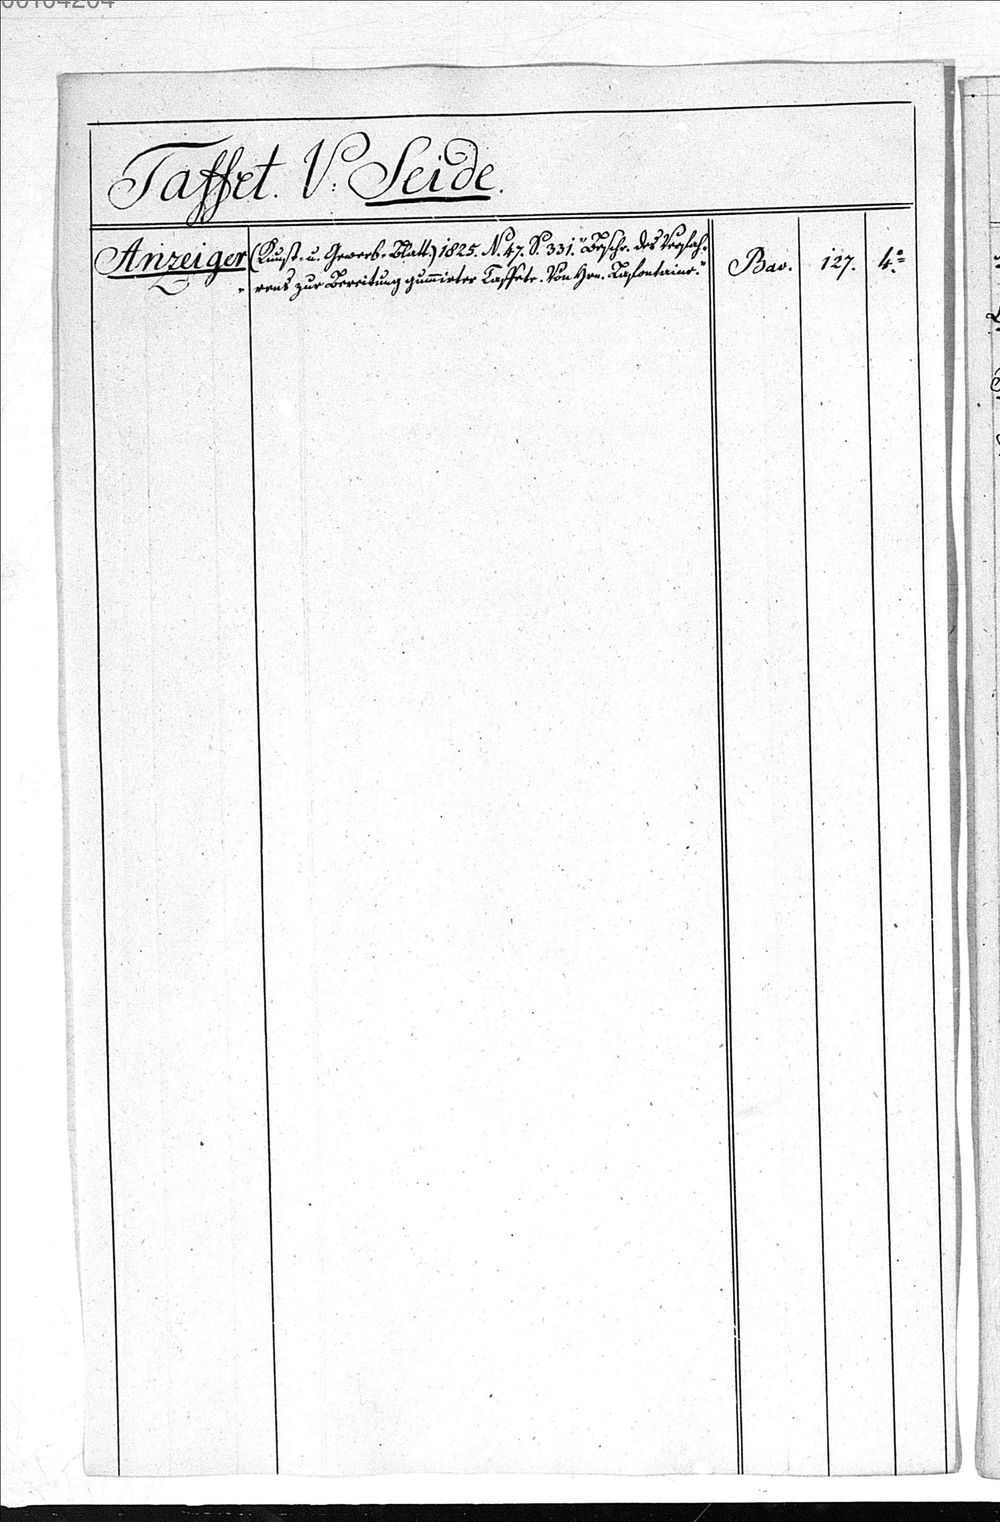 00104204
Taffet. V: Seide.
Anzeiger (Kunst- u. Gewerb-Blatt.) 1825. N. 47. S. 331. "Beschr. des Verfah- Bav. 127. 4.º
" rens zur Bereitung gum̅irter Taffete. Von Hrn. Lafontaine."